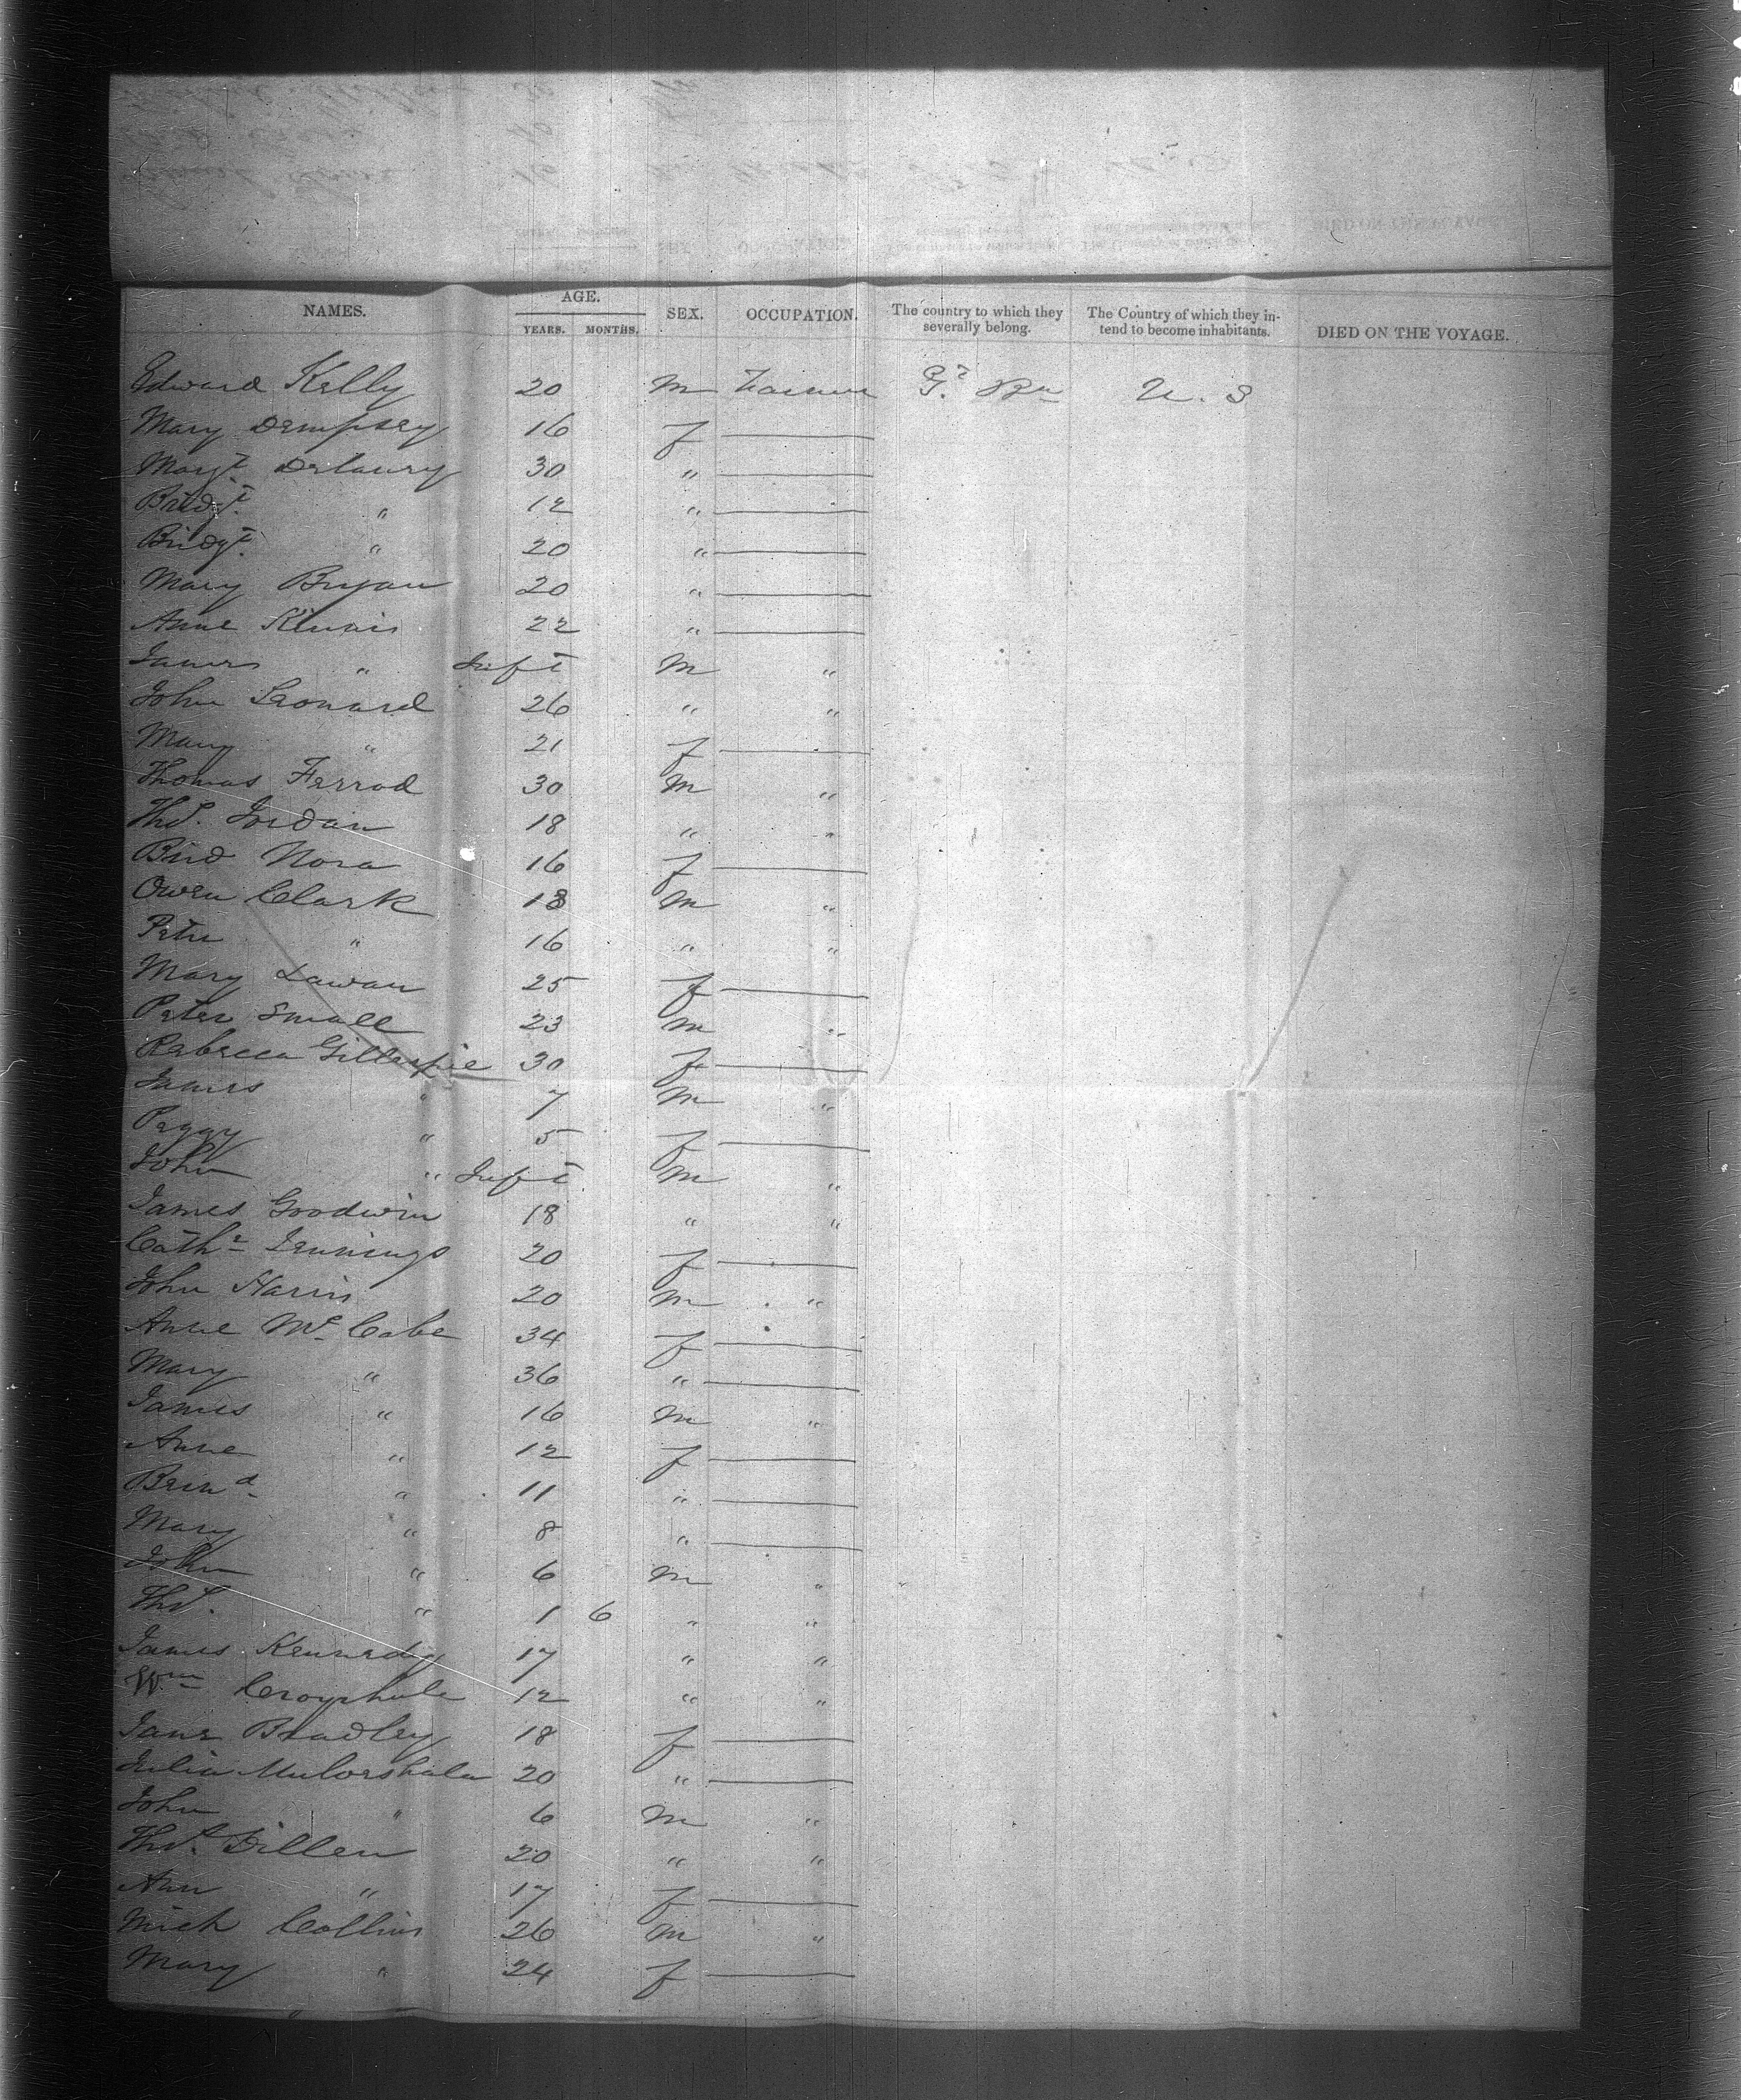 NAMES. AGE. YEARS. MONTHS. SEX. OCCUPATION. The country to which they severally belong. The Country of which they intend to become inhabitants. DIED ON THE VOYAGE.
Edward Kelly 20 m Farmer Gt Bn U. S
Mary Dempsey 16 f
Margt Delaury 30 "
Bridgt. " 12 "
Bridgt. " 20 "
Mary Bryan 20 "
Anne 22 "
James " Inft m "
John Leonard 26 " "
Mary " 21 f
Thomas Ferrod 30 m "
Thos. Jordan 18 " "
Bird Nora 16 f
Owen Clark 18 m "
Peter " 16 " "
Mary Lawan 25 f
Peter Small 23 m "
Rebecca Gillespie 30 f
James " 7 m "
Peggy " 5 f
John " Inft m "
James Goodwin 18 " "
Cathe Jennings 20 f
John Harris 20 m "
Anne Mc Cabe 34 f
Mary " 36 "
James " 16 m "
Anne " 12 f
Bernd " 11 "
Mary " 8 "
John " 6 m "
Thos. " 1 6 " "
James Kennedy 17 " "
Wm 12 " "
Jane Bradley 18 f
Julia 20 "
John " 6 m "
Thos. Dillen 20 " "
Ann " 17 f
Mich Collins 26 m "
Mary " 24 f